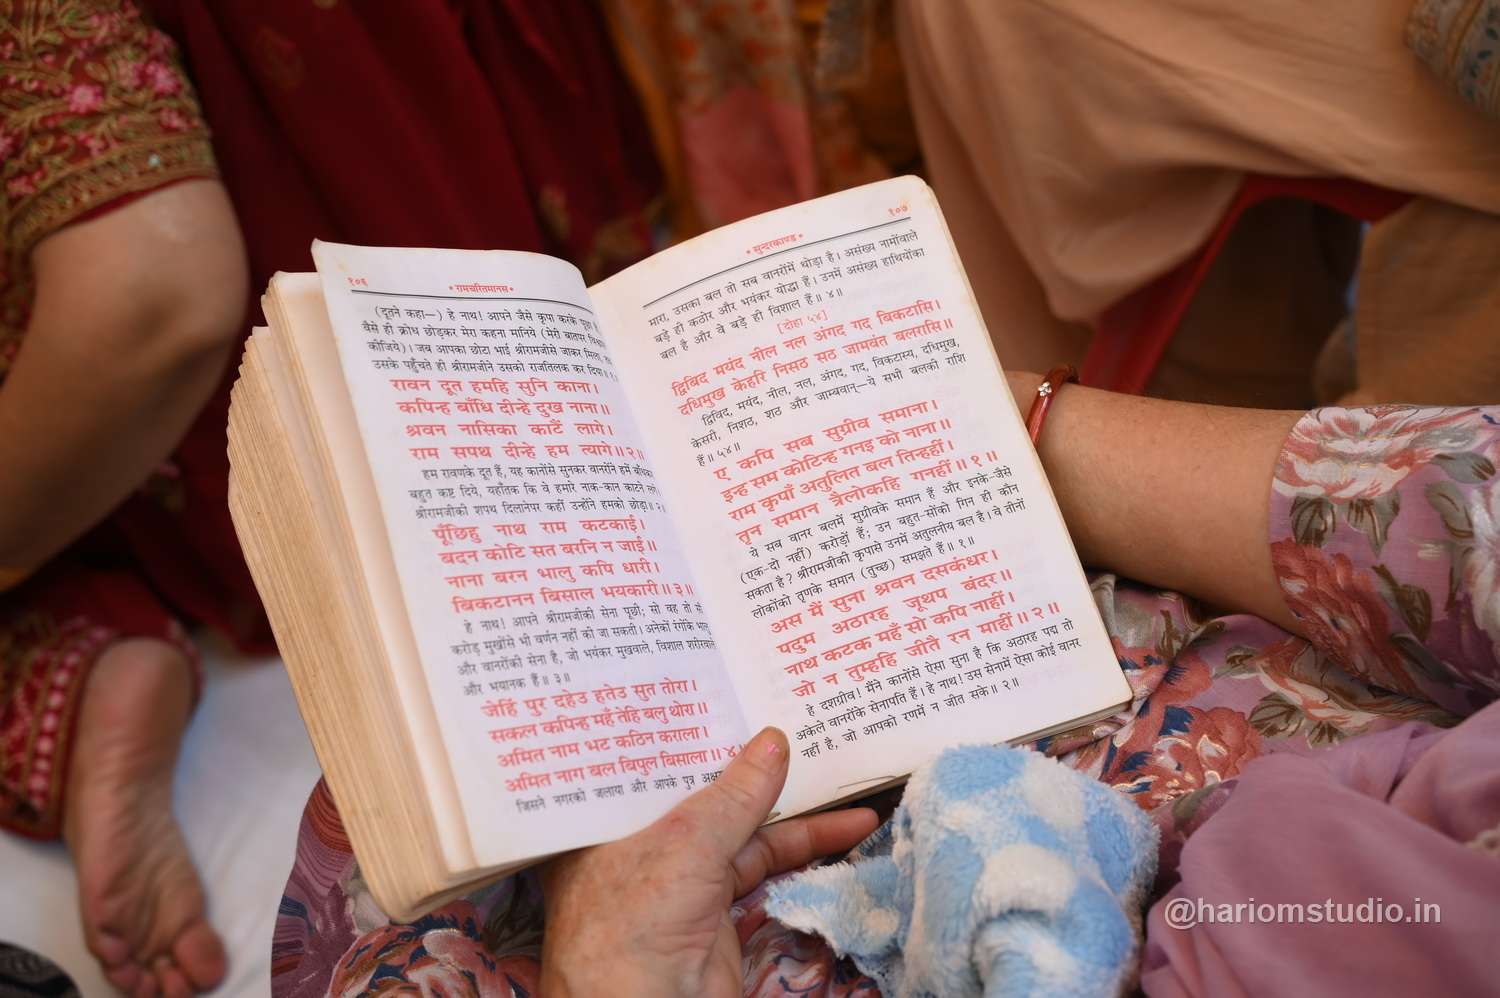 १०६
* रामचरितमानस *
(दूतने कहा—) हे नाथ! आपने जैसे कृपा करके पूछा
वैसे ही क्रोध छोड़कर मेरा कहना मानिये (मेरी बातपर
कीजिये)। जब आपका छोटा भाई श्रीरामजीसे जाकर मिला,
उसके पहुँचते ही श्रीरामजीने उसको राजतिलक कर दिया॥
रावन दूत हमहि सुनि काना।
कपिन्ह बाँधि दीन्हे दुख नाना॥
श्रवन नासिका काटैं लागे।
राम सपथ दीन्हे हम त्यागे॥ २॥
हम रावणके दूत हैं, यह कानोंसे सुनकर वानरोंने हमें बाँधकर
बहुत कष्ट दिये, यहाँतक कि वे हमारे नाक-कान काटने लगे।
श्रीरामजीकी शपथ दिलानेपर कहीं उन्होंने हमको छोड़ा॥ २॥
पूँछिहु नाथ राम कटकाई।
बदन कोटि सत बरनि न जाई॥
नाना बरन भालु कपि धारी।
बिकटानन बिसाल भयकारी॥ ३॥
हे नाथ! आपने श्रीरामजीकी सेना पूछी; सो वह तो सौ
करोड़ मुखोंसे भी वर्णन नहीं की जा सकती। अनेकों रंगोंके भालू
और वानरोंकी सेना है, जो भयंकर मुखवाले, विशाल शरीरवाले
और भयानक हैं॥ ३॥
जेहिं पुर दहेउ हतेउ सुत तोरा।
सकल कपिन्ह महँ तेहि बलु थोरा॥
अमित नाम भट कठिन कराला।
अमित नाग बल बिपुल बिसाला॥ ४॥
जिसने नगरको जलाया और आपके पुत्र
* सुन्दरकाण्ड *
१०७
मारा, उसका बल तो सब वानरोंमें थोड़ा है। असंख्य नामोंवाले
बड़े ही कठोर और भयंकर योद्धा हैं। उनमें असंख्य हाथियोंका
बल है और वे बड़े ही विशाल हैं॥ ४॥
[दोहा ५४]
द्विबिद मयंद नील नल अंगद गद बिकटासि।
दधिमुख केहरि निसठ सठ जामवंत बलरासि॥
द्विविद, मयंद, नील, नल, अंगद, गद, विकटास्य, दधिमुख,
केसरी, निशठ, शठ और जाम्बवान्—ये सभी बलकी राशि
हैं॥ ५४॥
ए कपि सब सुग्रीव समाना।
इन्ह सम कोटिन्ह गनइ को नाना॥
राम कृपाँ अतुलित बल तिन्हहीं।
तृन समान त्रैलोकहि गनहीं॥ १॥
ये सब वानर बलमें सुग्रीवके समान हैं और इनके-जैसे
(एक-दो नहीं) करोड़ों हैं; उन बहुत-सोंको गिन ही कौन
सकता है? श्रीरामजीकी कृपासे उनमें अतुलनीय बल है। वे तीनों
लोकोंको तृणके समान (तुच्छ) समझते हैं॥ १॥
अस मैं सुना श्रवन दसकंधर।
पदुम अठारह जूथप बंदर॥
नाथ कटक महँ सो कपि नाहीं।
जो न तुम्हहि जीतै रन माहीं॥ २॥
हे दशग्रीव! मैंने कानोंसे ऐसा सुना है कि अठारह पद्म तो
अकेले वानरोंके सेनापति हैं। हे नाथ! उस सेनामें ऐसा कोई वानर
नहीं है, जो आपको रणमें न जीत सके॥ २॥
@hariomstudio.in